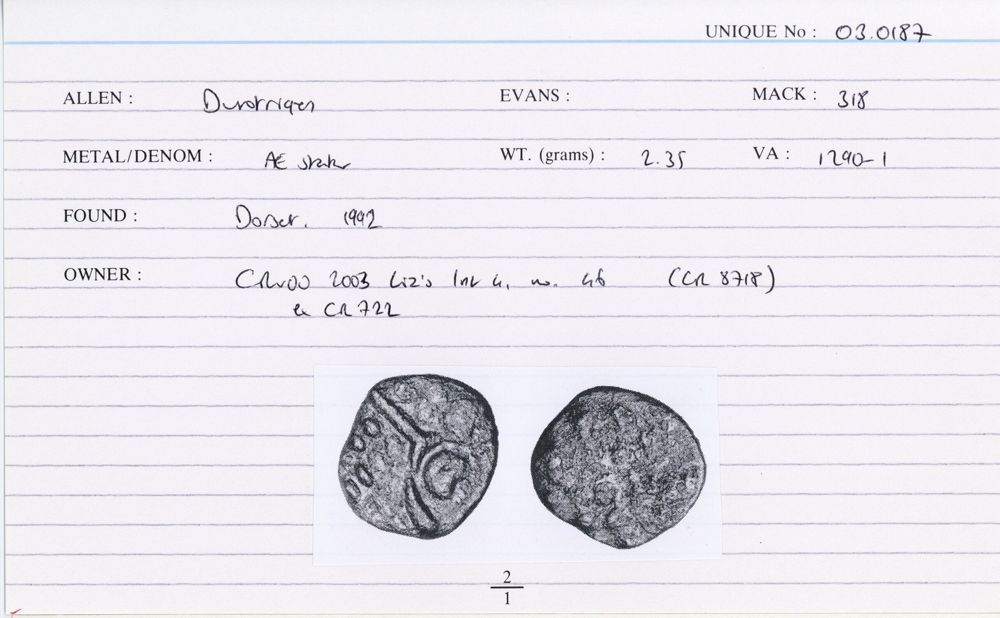 UNIQUE No : 03.0187
ALLEN : Durotriges EVANS : MACK : 318
METAL/DENOM : AE stater WT. (grams) : 2.35 VA : 1290-1
FOUND : Dorset. 1992
OWNER : 2003 Liz's no. 46 (CR 8718)
ex CR 722
2
1